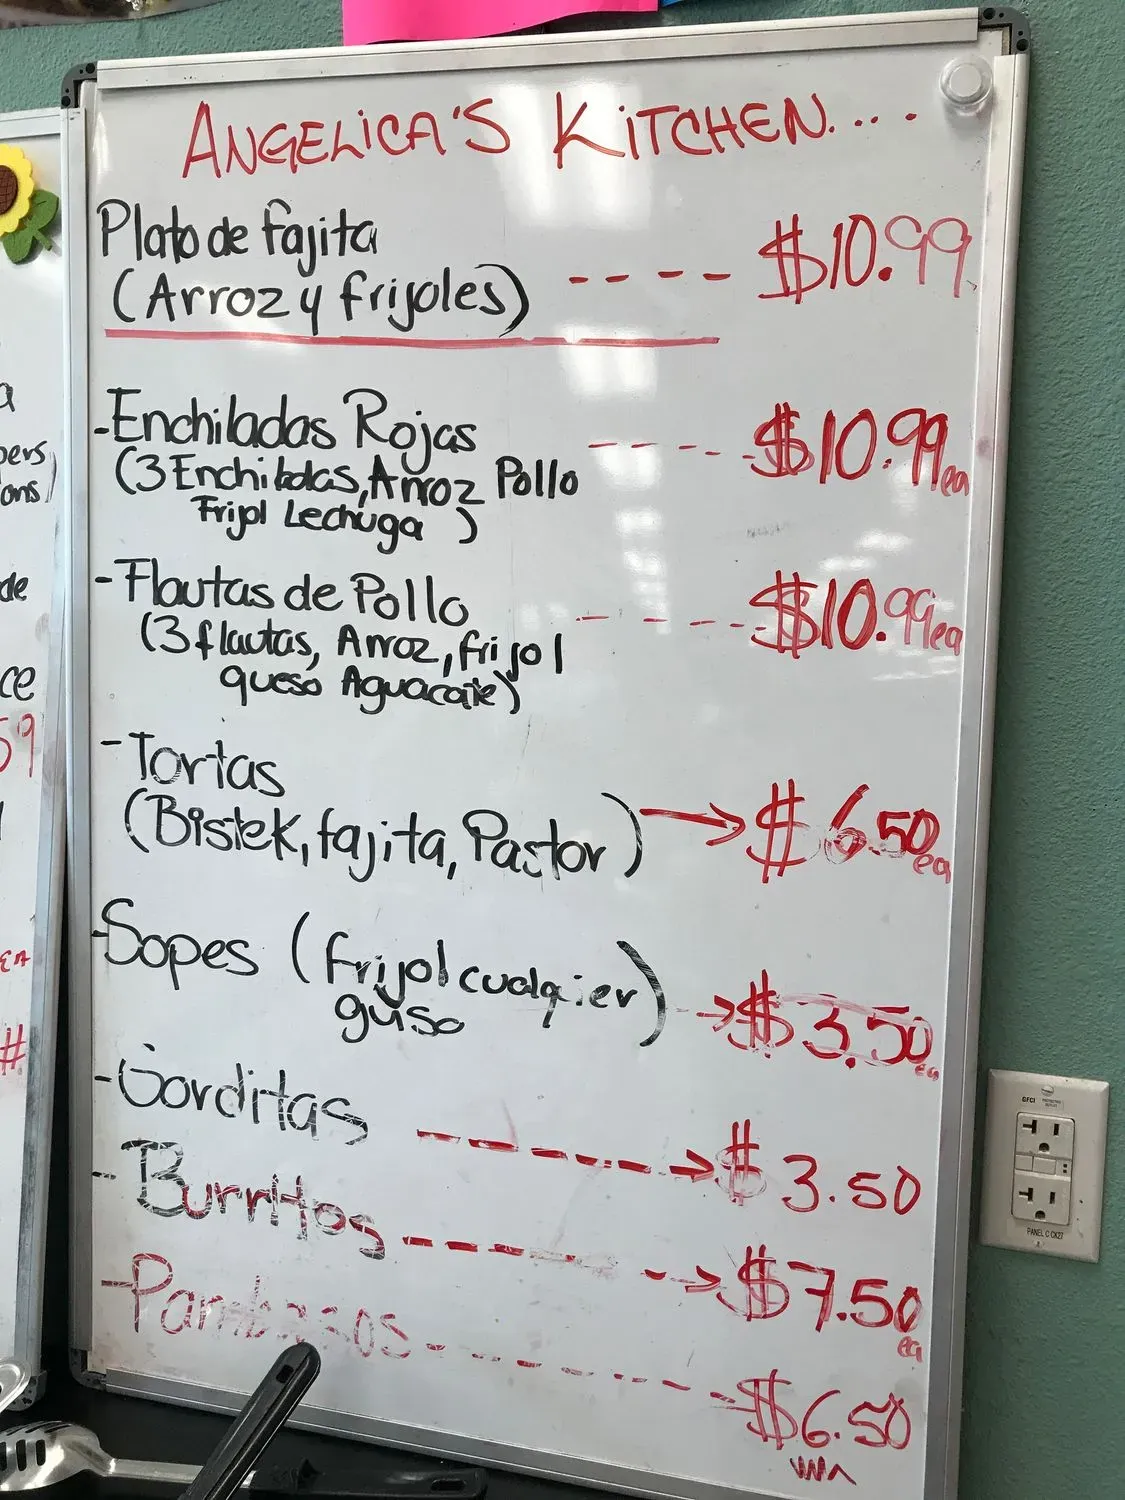 ANGELICA'S KITCHEN....
Plato de fajita
(Arroz y frijoles) ---- $10.99
-Enchiladas Rojas ---- $10.99 ea
(3 Enchiladas, Arroz Pollo
Frijol Lechuga)
-Flautas de Pollo ---- $10.99 ea
(3 flautas, Arroz, frijol
queso Aguacate)
-Tortas
(Bistek, fajita, Pastor) → $6.50 ea
-Sopes (frijol cualquier
guiso) → $3.50 ea
-Gorditas ----→ $3.50
-Burritos ----→ $7.50 ea
-Pambasos ---- $6.50
a
pers
ons)
de
ce
59
EA
#
GFCI
PANEL C CK27